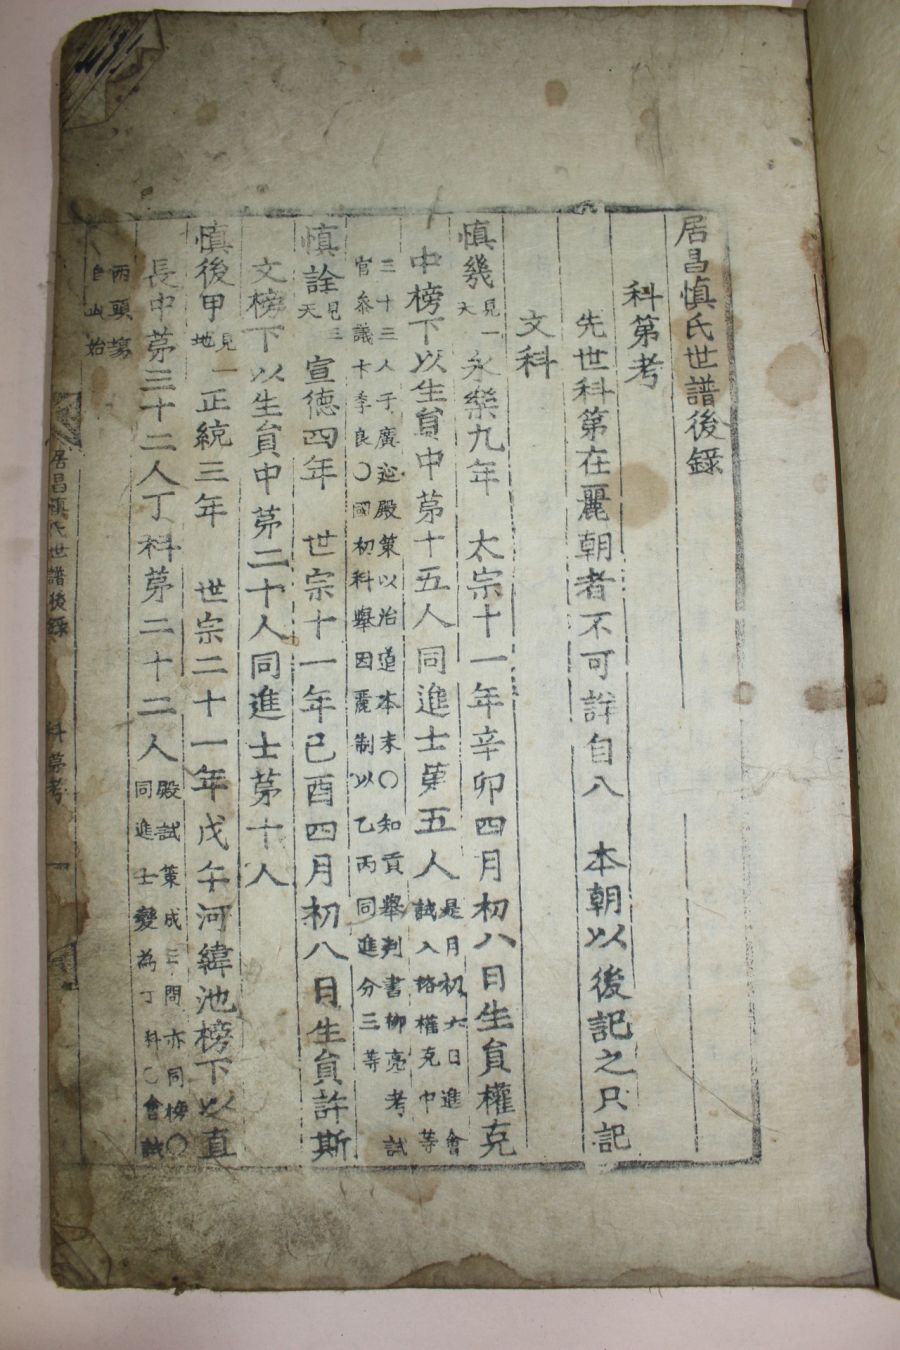 居昌愼氏世譜後錄
科第考
先世科第在麗朝者不可詳自入 本朝以後記之只記
文科
愼幾見一天 永樂九年 太宗十一年辛卯四月初八日生員權克
中榜下以生員中苐十五人同進士第五人是月初六日進會
試入格權克中等
三十三人于廣延殿策以治道本末○知貢擧判書柳亮考試
官參議卞季良○國初科擧因麗制以乙丙同進分三等
愼詮見三天 宣德四年 世宗十一年己酉四月初八日生員許斯
文榜下以生員中苐二十人同進士苐十人
愼後甲見一地 正統三年 世宗二十一年戊午河緯池榜下以直
長中苐三十二人丁科苐二十二人殿試策成三問亦同榜○
同進士變為丁科○會試
兩頭塲
自此始
居昌愼氏世譜後錄 科苐考 一